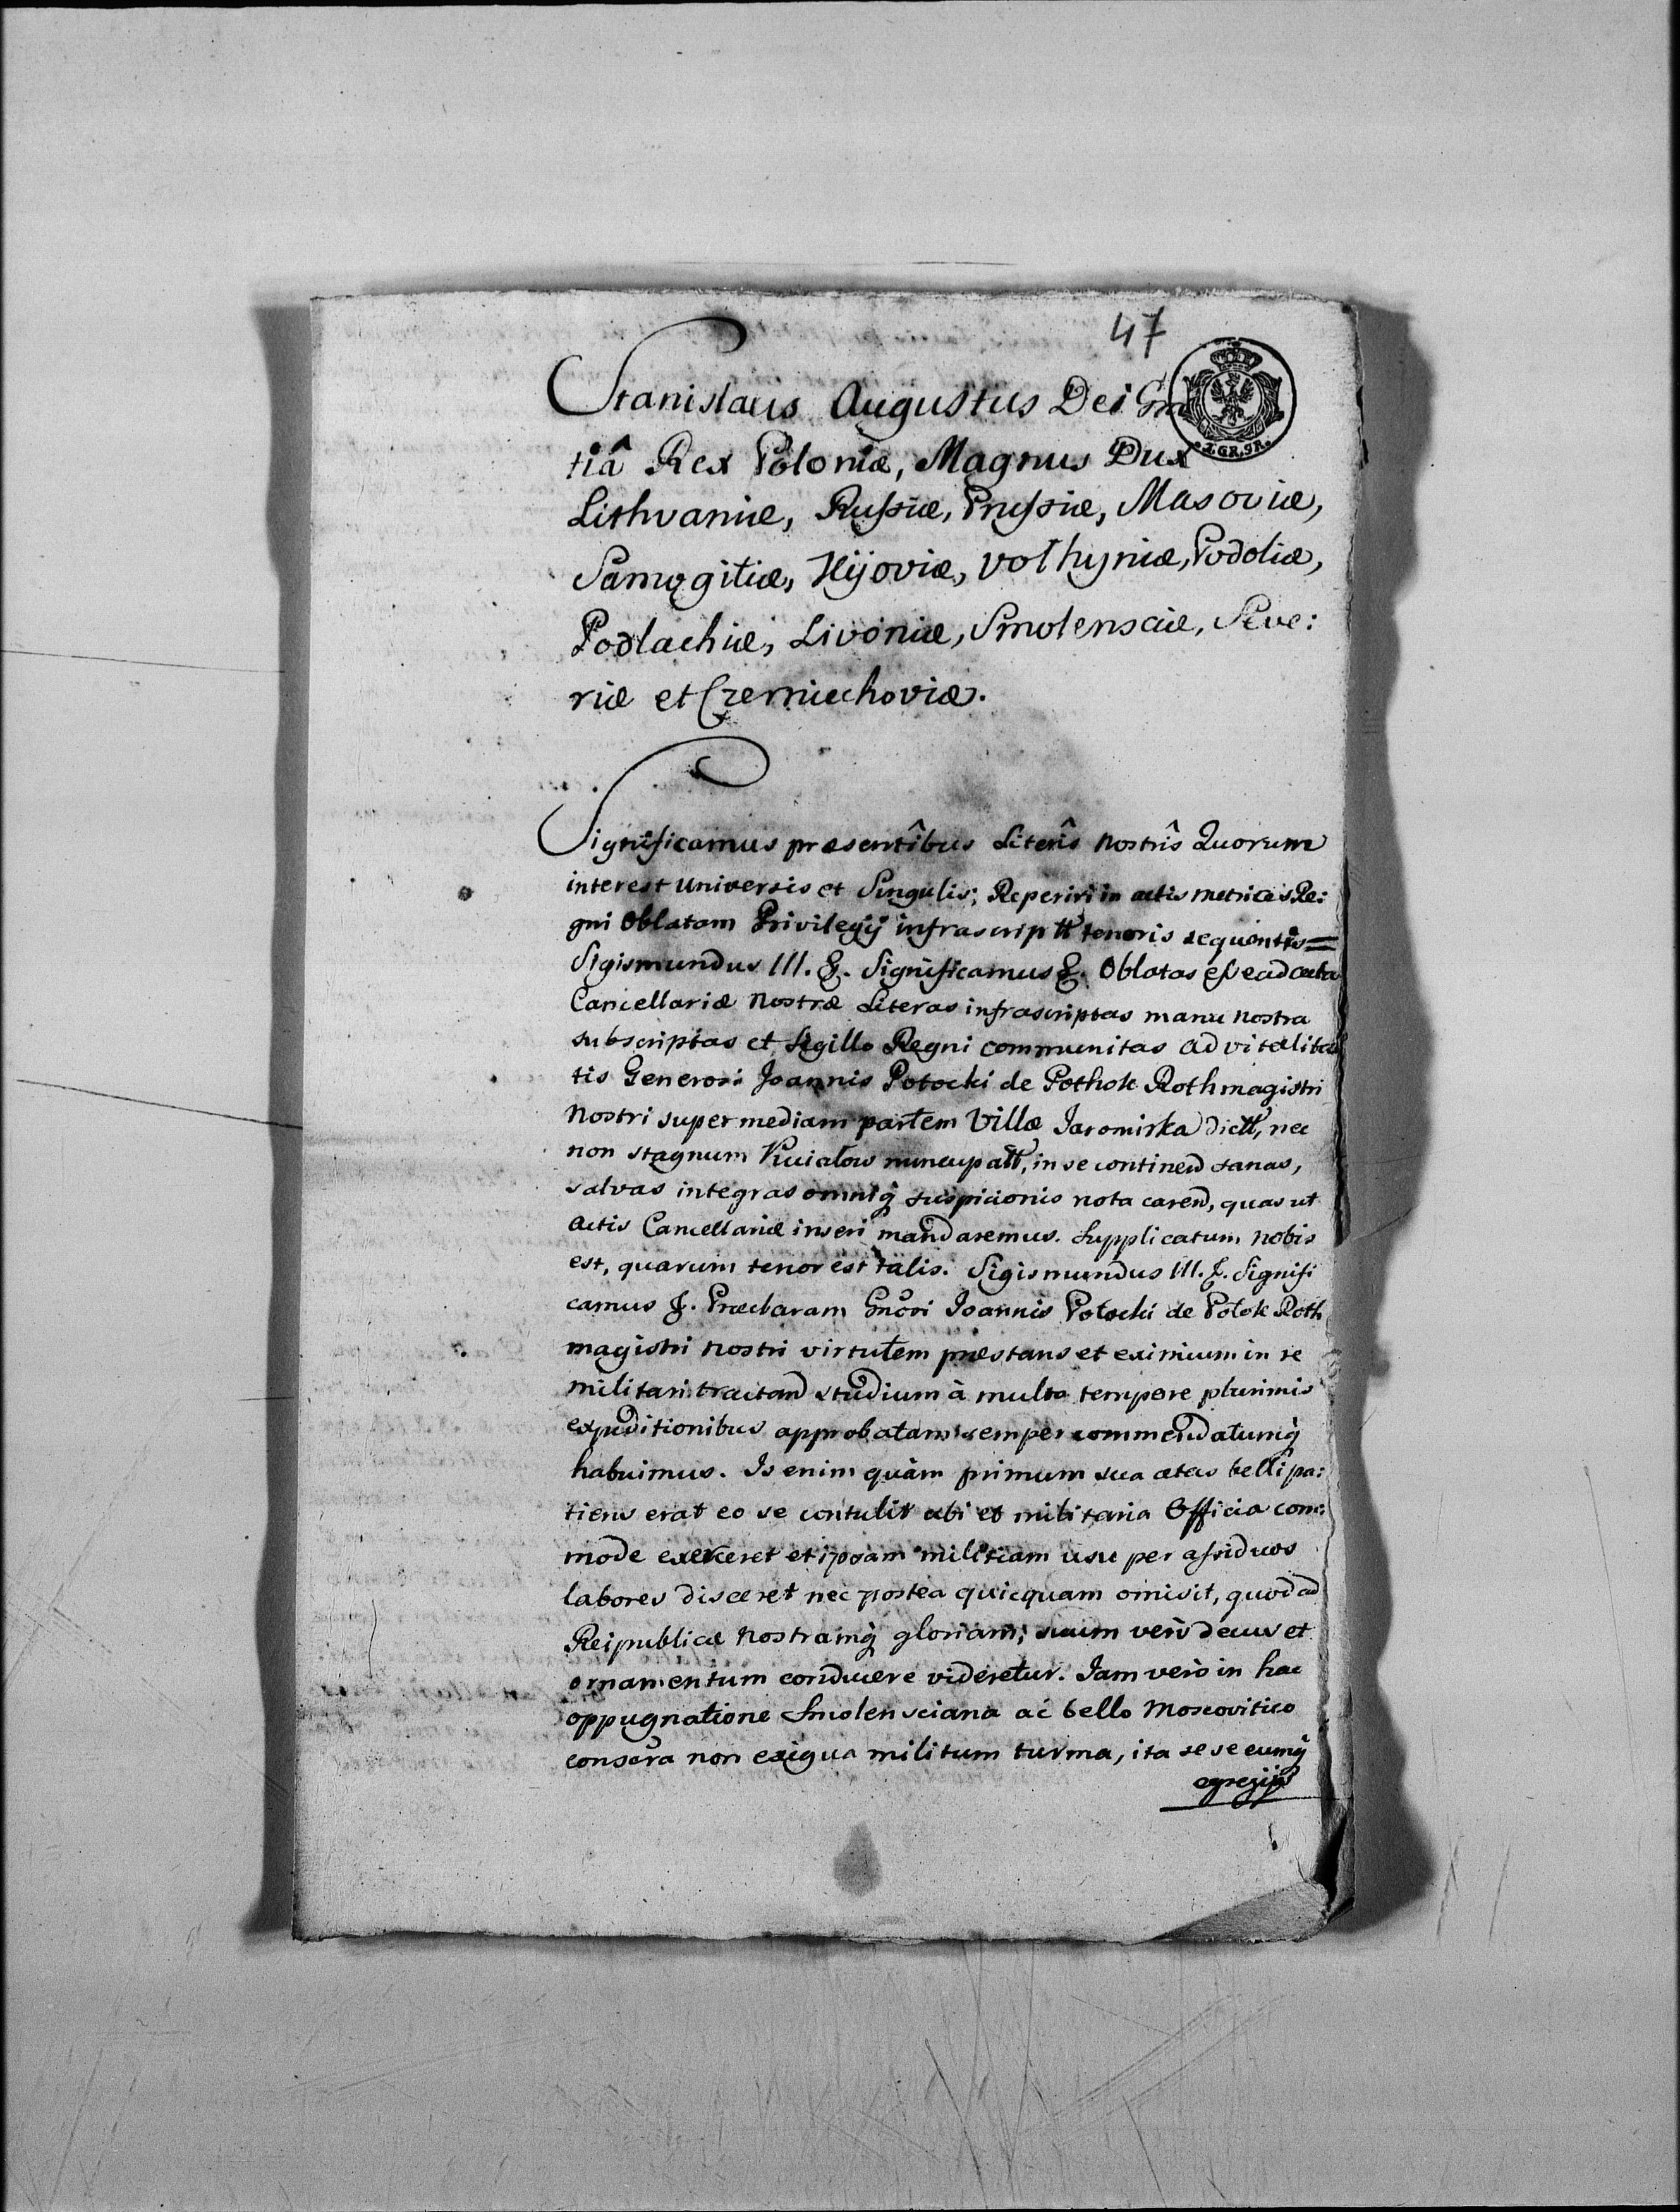 47
Stanislaus Augustus Dei Gra
tiâ Rex Poloniæ, Magnus Dux
Lithvaniæ, Rußiæ, Prußiæ, Masoviæ,
Samogitiæ, Kijoviæ, Volhyniæ, Podoliæ,
Podlachiæ, Livoniæ, Smolensciæ, Seve:
riæ et Czerniechoviæ.
Significamus præsentibus Literis nostris Quorum
interest Universis et Singulis; Reperiri in actis metrices Re:
gni Oblatam Privilegÿ infrascriptt tenoris sequentis=
Sigismundus III. &. Significamus &. Oblatas eße ad acta
Cancellariæ Nostræ Literas infrascriptas manu nostra
subscriptas et Sigillo Regni communitas ad vitalita
tis Generosi Joannis Potocki de Pothok Rothmagistri
Nostri super mediam partem Villæ Jaromirka dictt, nec
non stagnum nuncupatt, in se continend sanas,
salvas integras omniq suspicionis nota carend, quas ut
actis Cancellariæ inseri mandaremus. Supplicatum nobis
est, quarum tenor est talis. Sigismundus III. &. Signifi
camus &. Præclaram Gnosi Joannis Potocki de Potok Roth
magistri nostri virtutem præstans et eximium in re
militari tractand studium à multo tempore plurimis
expeditionibus approbatam semper commendatumq
habuimus. Is enim quàm primum sua ætas belli pa:
tiens erat eo se contulit ubi et militaria Officia com:
mode exerceret et ipsam militiam usu per aßiduos
labores disceret nec postea quicquam omisit, quod ad
Reipublicæ nostramq gloriam; suum verò decus et
ornamentum conducere videretur. Jam verò in hac
oppugnatione Smolensciana ac bello Moscovitico
non exigua militum turma, ita se se eumq
egregijs